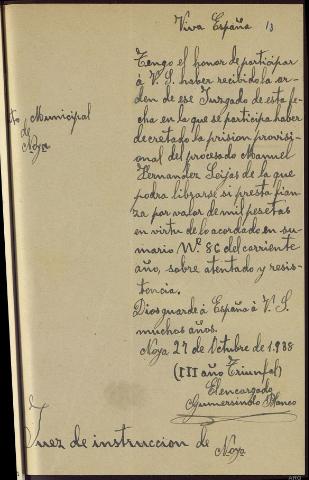 Viva España 13
Tengo el honor de participar
á V. S. haber recibido la or-
den de ese Juzgado de esta fe-
cha en la que se participa haber
decretado la prision provisi-
onal del procesado Manuel
Fernandez Leijas de la que
podra librarse si presta fian-
za por valor de mil pesetas
en virtud de lo acordado en su-
mario Nº. 86 del corriente
año, sobre atentado y resis-
tencia.
Dios guarde á España á V. S.
muchos años.
Noya 27 de Octubre de 1.938
(III año Triunfal)
El encargado
Gumersindo Blanco
to Municipal
de
Noya
Juez de instruccion de Noya